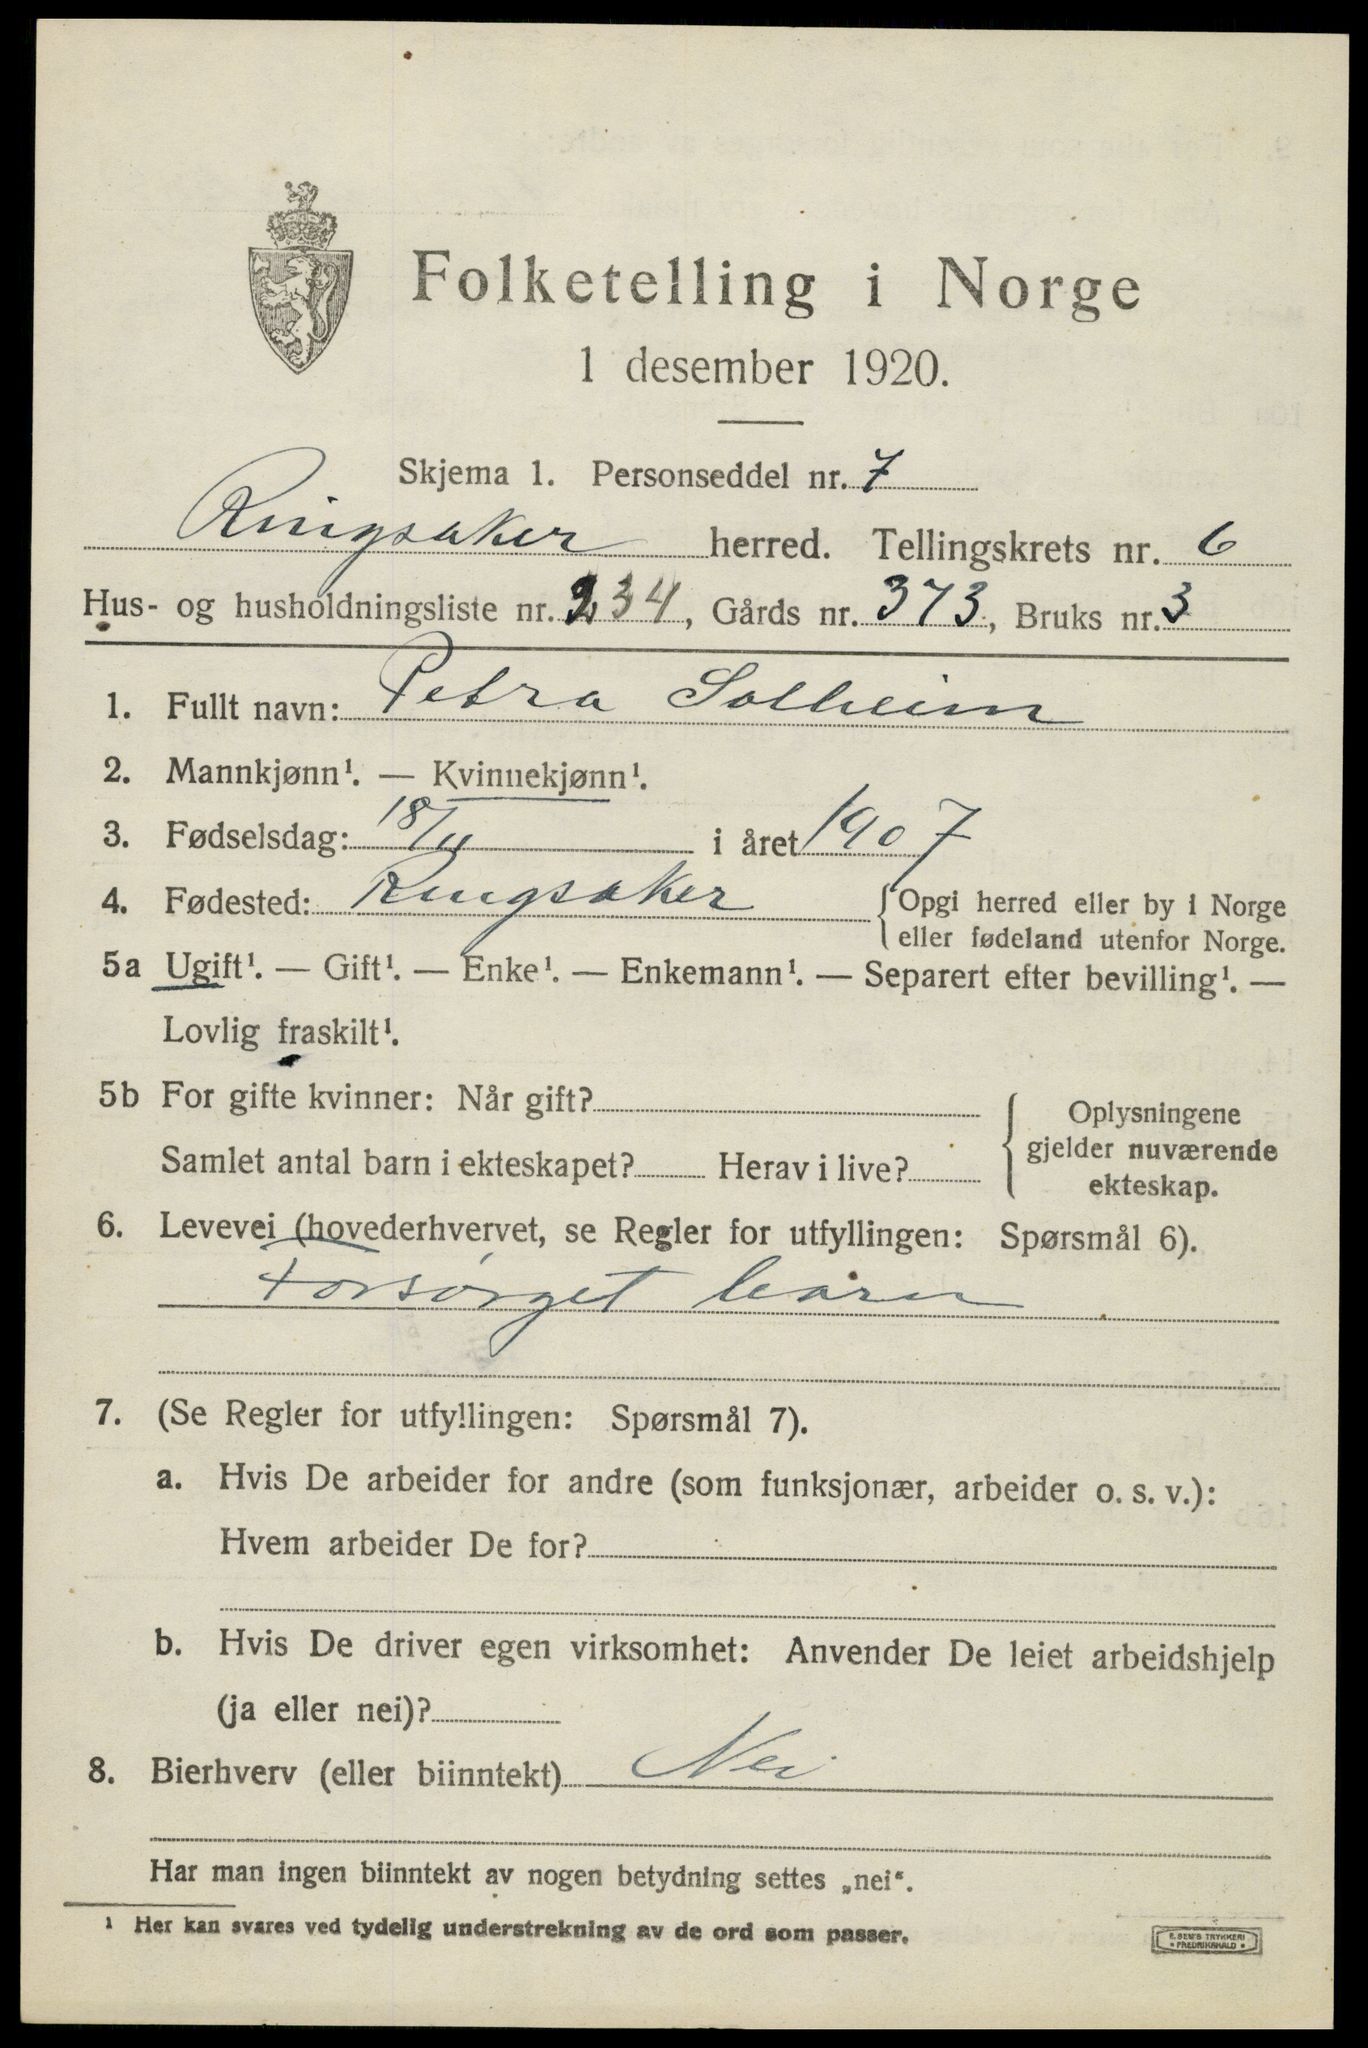 Folketelling i Norge
1 desember 1920.
Skjema 1. Personseddel nr. 7
Ringsaker herred. Tellingskrets nr. 6
Hus- og husholdningsliste nr. 234, Gårds nr. 373, Bruks nr. 3
1. Fullt navn: Petra Solheim
2. Mannkjønn¹. — Kvinnekjønn¹.
3. Fødselsdag: 18/11 i året 1907
4. Fødested: Ringsaker {Opgi herred eller by i Norge
eller fødeland utenfor Norge.
5a Ugift¹. — Gift¹. — Enke¹. — Enkemann¹. — Separert efter bevilling¹. —
Lovlig fraskilt¹.
5b For gifte kvinner: Når gift?
Samlet antal barn i ekteskapet? Herav i live?
Oplysningene
gjelder nuværende
ekteskap.
6. Levevei (hovederhvervet, se Regler for utfyllingen: Spørsmål 6).
Forsørget barn
7. (Se Regler for utfyllingen: Spørsmål 7).
a. Hvis De arbeider for andre (som funksjonær, arbeider o. s. v.):
Hvem arbeider De for?
b. Hvis De driver egen virksomhet: Anvender De leiet arbeidshjelp
(ja eller nei)?
8. Bierhverv (eller biinntekt) Nei
Har man ingen biinntekt av nogen betydning settes „nei“.
¹ Her kan svares ved tydelig understrekning av de ord som passer.
E. SEM'S TRYKKERI
FREDRIKSHALD